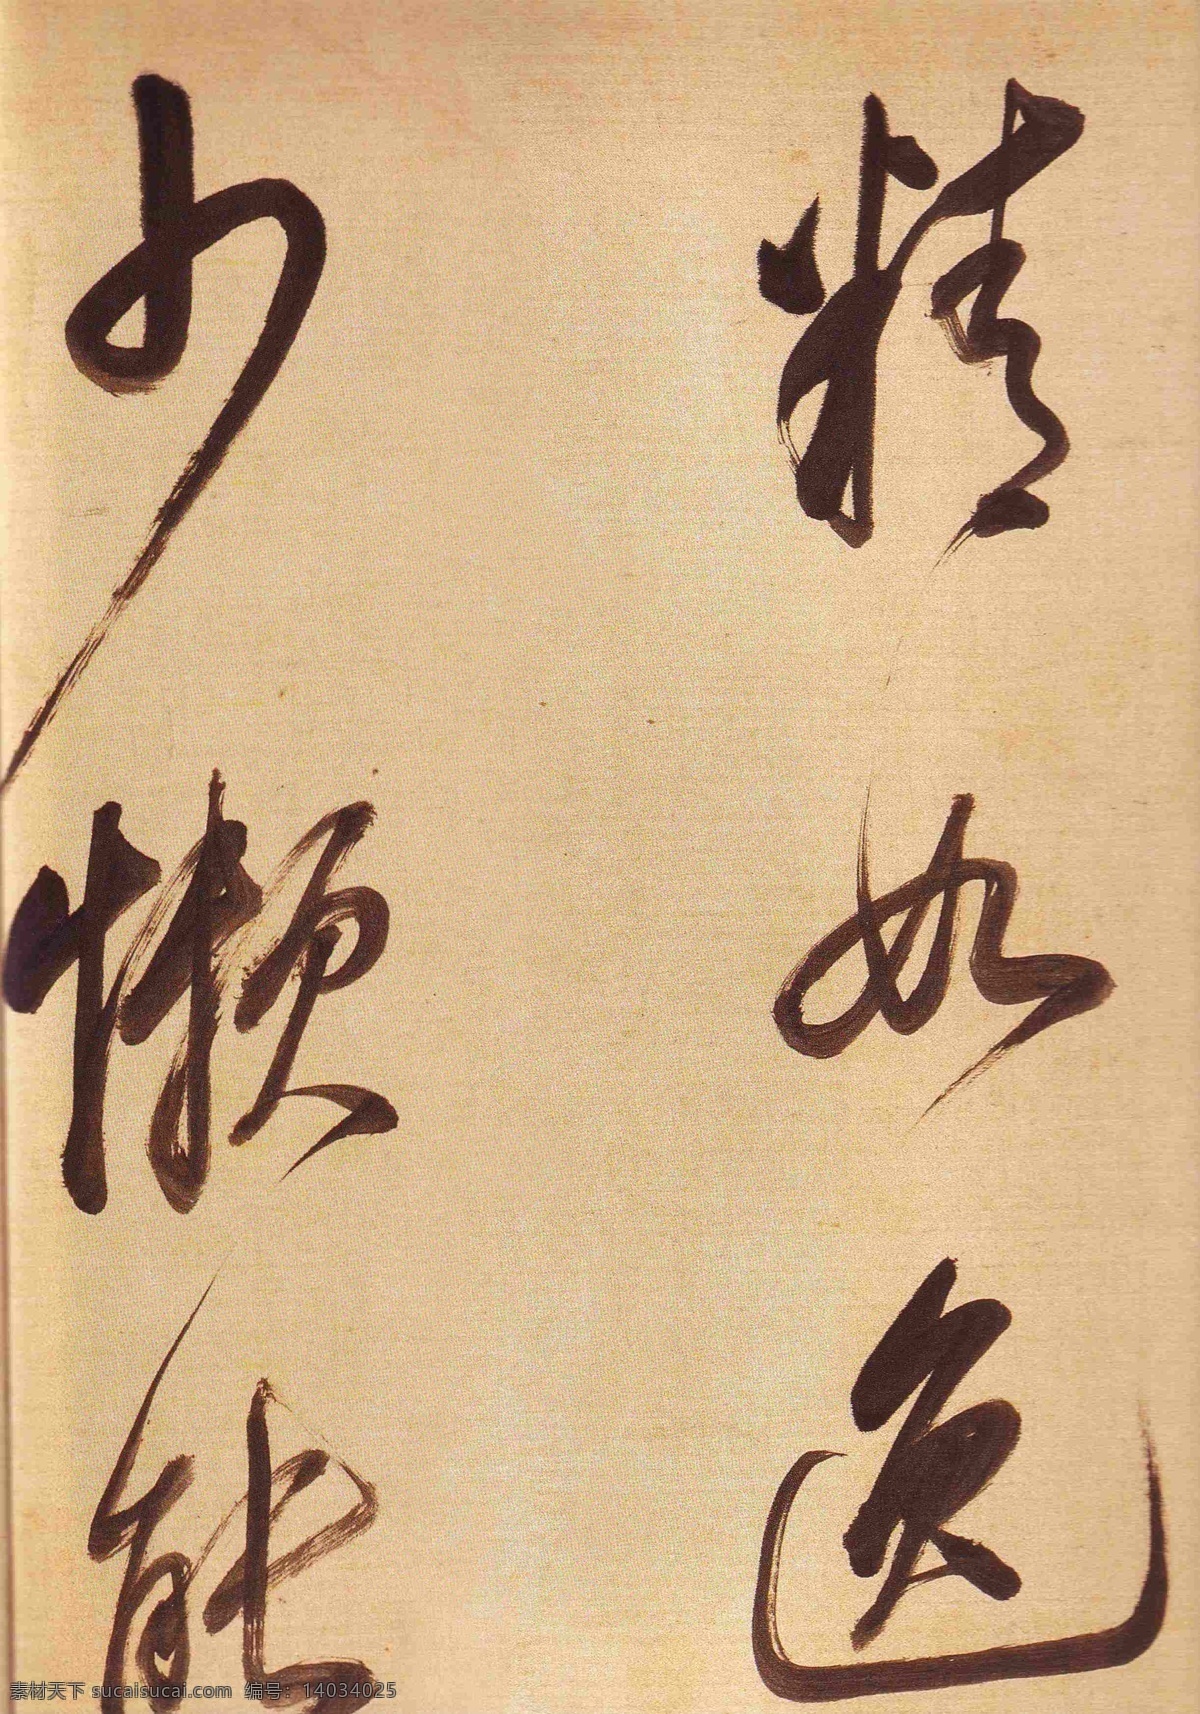 精如逸
少懶能
素材天下 sucaisucai.com 编号：14034025